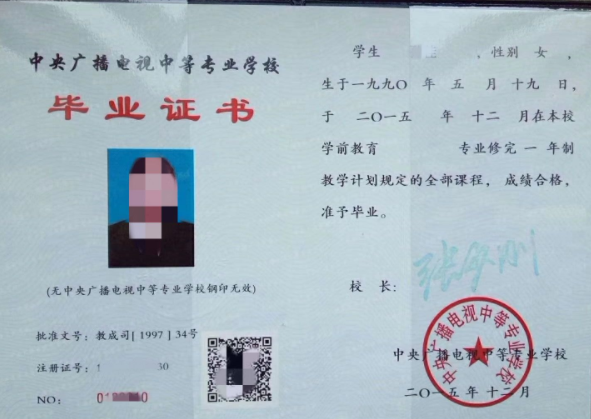 中央广播电视中等专业学校
毕业证书
(无中央广播电视中等专业学校钢印无效)
批准文号：教成司[1997]34号
注册证号：1 30
NO： 01 0
学生 ，性别 女 ，
生于一九九〇 年 五 月 十九 日，
于 二〇一五 年 十二 月在本校
学前教育 专业修完 一 年制
教学计划规定的全部课程，成绩合格，
准予毕业。
校 长：
中央广播电视中等专业学校
二〇一五年十二月
中央广播电视中等专业学校